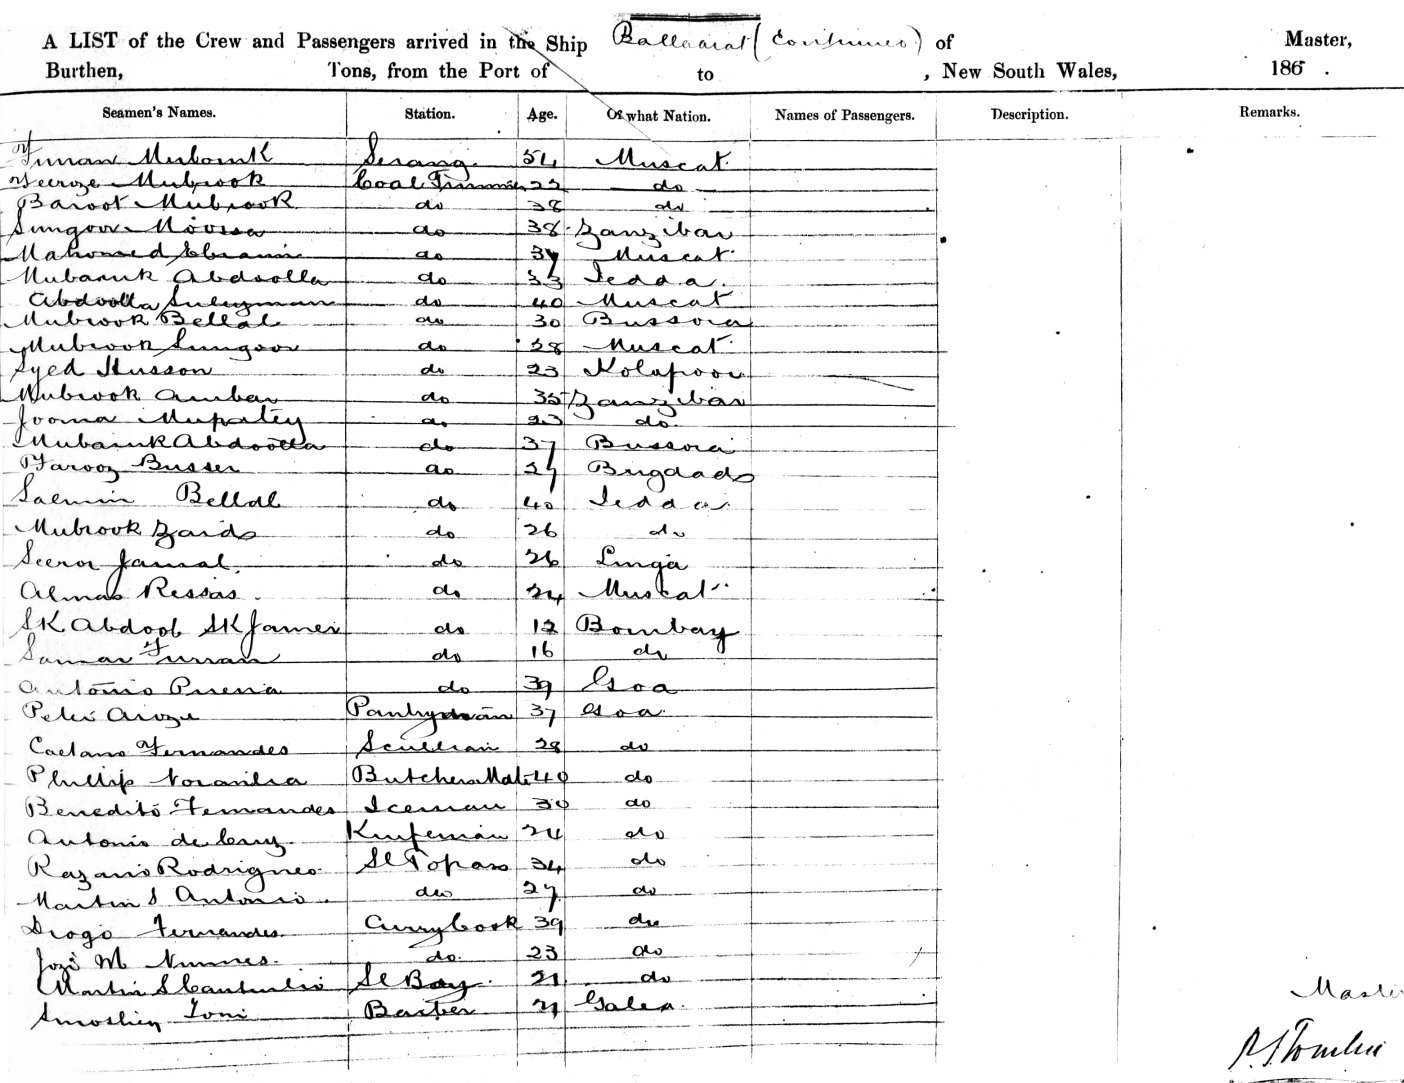 A LIST of the Crew and Passengers arrived in the Ship Ballaarat (Continued) of Master,
Burthen, Tons, from the Port of to , New South Wales, 186 .
Seamen's Names. Station. Age. Of what Nation. Names of Passengers. Description. Remarks.
Furran Mubaruk Serang 54 Muscat
Feeroze Mubrook Coal Trimmer 22 do
Baroot Mubrook do 38 do
Sungoor Moossa do 38 Zanzibar
Mahomed Ebraim do 34 Muscat
Mubaruk Abdoolla do 33 Jedda
Abdoolla Suleyman do 40 Muscat
Mubrook Bellal do 30 Bussora
Mubrook Sungoor do 28 Muscat
Syed Husson do 23 Kolapoor
Mubrook Ambar do 35 Zanzibar
Jooma Mupatey do 23 do
Mubaruk Abdoolla do 37 Bussora
Farooz Busser do 27 Bugdad
Salmin Bellal do 40 Jedda
Mubrook Zaid do 26 do
Seeror Jamal do 26 Linga
Almas Ressas do 24 Muscat
SK Abdool SK James do 12 Bombay
Samar Furran do 16 do
Antonio Pureira do 39 Goa
Peter Aroze Pantryman 37 Goa
Caetano Fernandes Scullian 28 do
Phillip Noranha Butchers Mate 40 do
Benedito Fernandes Iceman 30 do
Antonio de Cruz Knifeman 24 do
Razario Rodrigues Sl Topass 34 do
Martin S Antonio do 27 do
Diogo Fernandes Curry Cook 39 do
Jozé M Nunnes do 23 do
Martin S Sl Boy 21 do
Toni Barber 21 Galea
Master